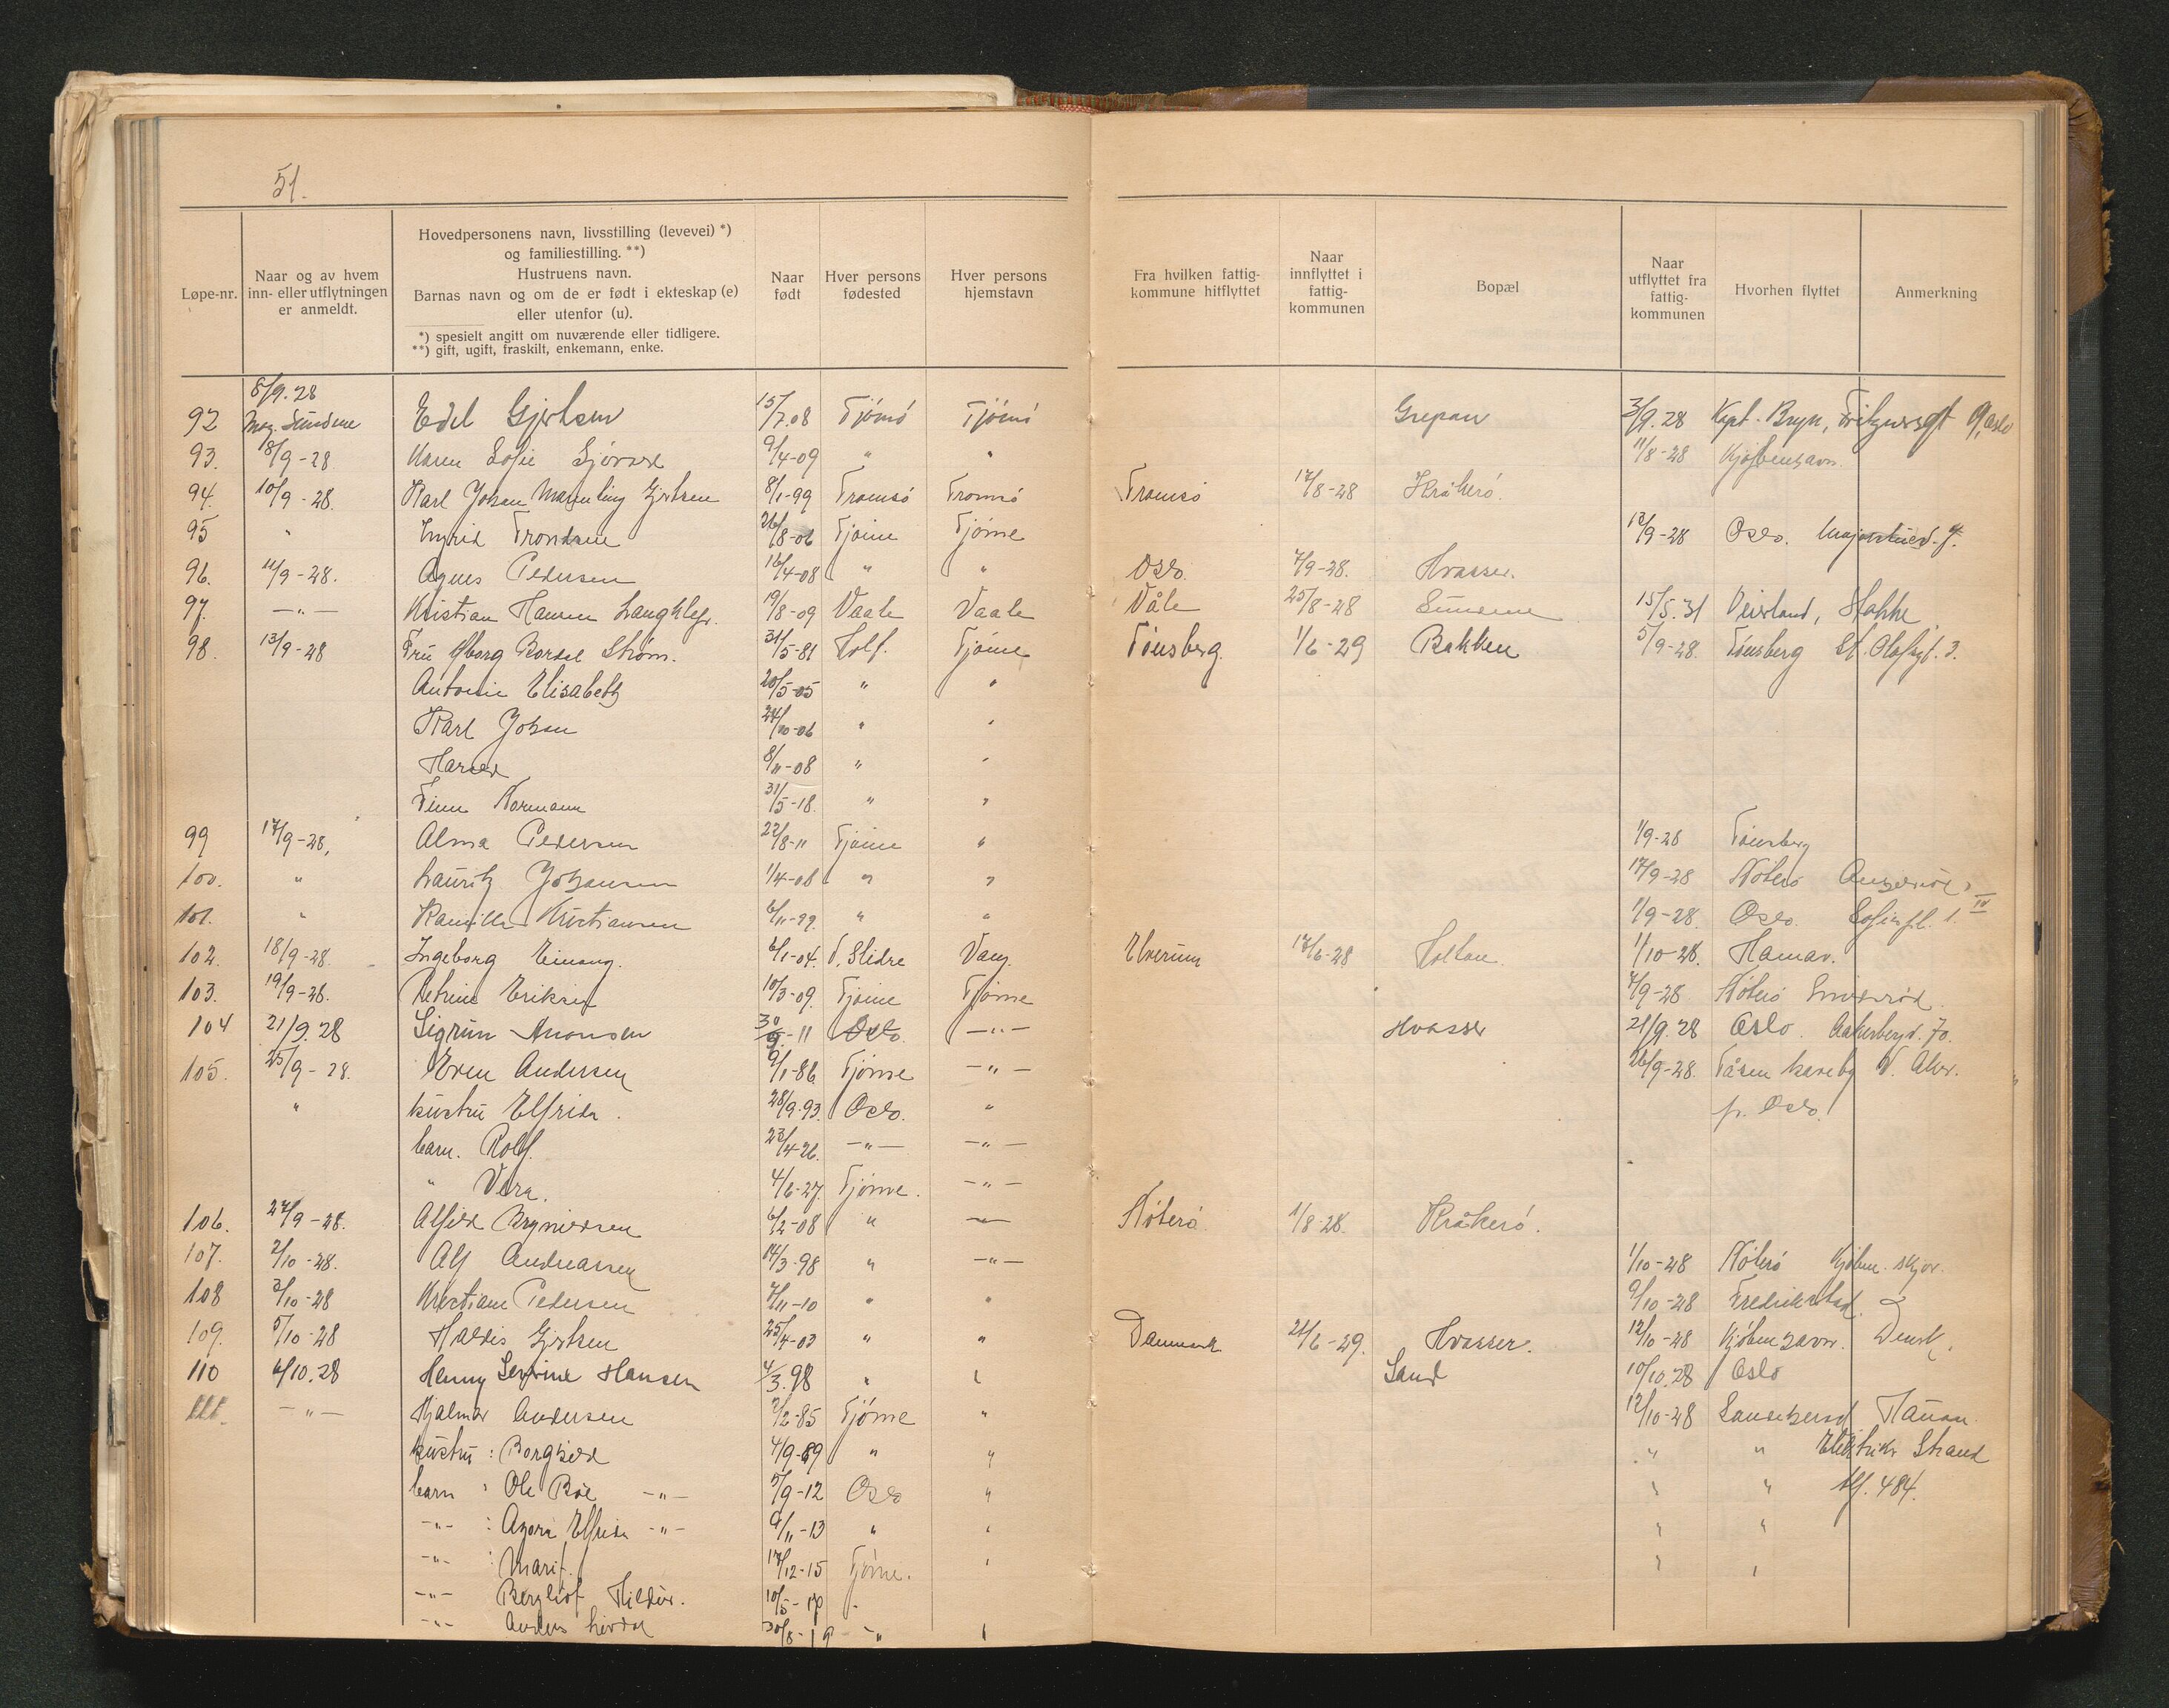 51.
Løpe-nr.
Naar og av hvem
inn- eller utflytningen
er anmeldt.
Hovedpersonens navn, livsstilling (levevei) *)
og familiestilling. **)
Hustruens navn.
Barnas navn og om de er født i ekteskap (e)
eller utenfor (u).
*) spesielt angitt om nuværende eller tidligere.
**) gift, ugift, fraskilt, enkemann, enke.
Naar
født
Hver persons
fødested
Hver persons
hjemstavn
Fra hvilken fattig-
kommune hitflyttet
Naar
innflyttet i
fattig-
kommunen
Bopæl
Naar
utflyttet fra
fattig-
kommunen
Hvorhen flyttet
Anmerkning
8/9.28
92 Edel Gjertsen 15/7.08 Tjömö Tjömö Grepan 3/9.28 Kapt. Bryn, 9, Oslo
93. 18/9-28 Karen Sofie 9/4-09 " " 11/8-28 Kjøbenhavn.
94. 10/9-28. Karl Johan Gjertsen 8/1-99 Tromsö Tromsö Tromsö 17/8-28 Kråkerö.
95 " Ingrid Trondsen 26/8-06 Tjøme Tjøme 13/9-28 Oslo.
96. 11/9-28. Agnes Pedersen 16/4-08 " " Oslo. 7/9-28. Hvasser.
97. -"- Kristian Hansen 19/8-09 Vaale Vaale Våle 25/8-28 15/5.31 Veierland, Stokke
98. 13/9-28 Fru Bordal Strøm. 31/5-81 Holf. Tjøme Tönsberg. 1/6-29 Bakken 5/9-28. Tönsberg St. Olafsgt. 3.
Antonie Elisabeth 20/5-05 " "
Karl Johan 24/10-06 " "
Harald 8/11-08 " "
Finn Normann 31/5-18. " "
99 17/9-28, Alma Pedersen 22/8-11 Tjøme " 1/9-28 Tönsberg
100. " Lauritz Johansen 1/4-08 " " 17/9-28 Nöterö
101. " Kamilla Kristiansen 6/11-99. " " 1/9-28. Oslo. Sofiespl. 1. IV
102. 18/9-28. Ingeborg Einang. 6/1-04. V. Slidre Vang. Elverum 17/6-28 Holtan. 1/10-28. Hamar.
103. 19/9-28. Petrine Eriksen 10/3-09. Tjøme Tjøme 7/9-28 Nöterö
104 21/9.28 Sigrun Amonsen 30/9-11 Oslo. -"- Hvasser 21/9.28 Oslo. Aakerbergv. 70.
105. 25/9-28. Even Andersen 9/1-86 Tjøme -"- 26/9-28. Tåsen haveby V. Aker.
" hustru Elfrida. 28/9.93. Oslo. " p. Oslo.
barn. Rolf. 23/4-26. -"- -"-
" Vera. 4/6-27. Tjøme. -"-
106. 27/9-28. Alfild Brynildsen 6/2-08 " -"- Nöterö. 1/8-28. Kråkerö.
107. 2/10-28. Alf Andreassen 14/3-98 " -"- 1/10-28 Nöterö
108 3/10-28 Kristiane Pedersen 7/11-10 " " 9/10-28 Fredrikstad.
109. 5/10-28 Haldis Gjertsen 25/4-03 " " Danmark 21/6-29. Hvasser. 12/10-28 Kjøbenhavn. Dank.
110 6/10.28 Henny Severine Hansen 4/3.98 " " Sand 10/10.28 Oslo
111. -"- Hjalmar Andersen 2/2-85 Tjøme " 12/10-28 Sandeherad
hustru: Borghild 4/9-89 " " " " Elektriker Strand
barn: Ole Roe -"- 5/9-12 Oslo " " " tlf. 484.
-"- : Elfrida -"- 9/11-13 " " " "
-"- : Marit. 17/12-15 Tjøme. " " "
-"- Bergliot Hildur. 10/5-17 "
-"- Anders 20/8-19 -"- "